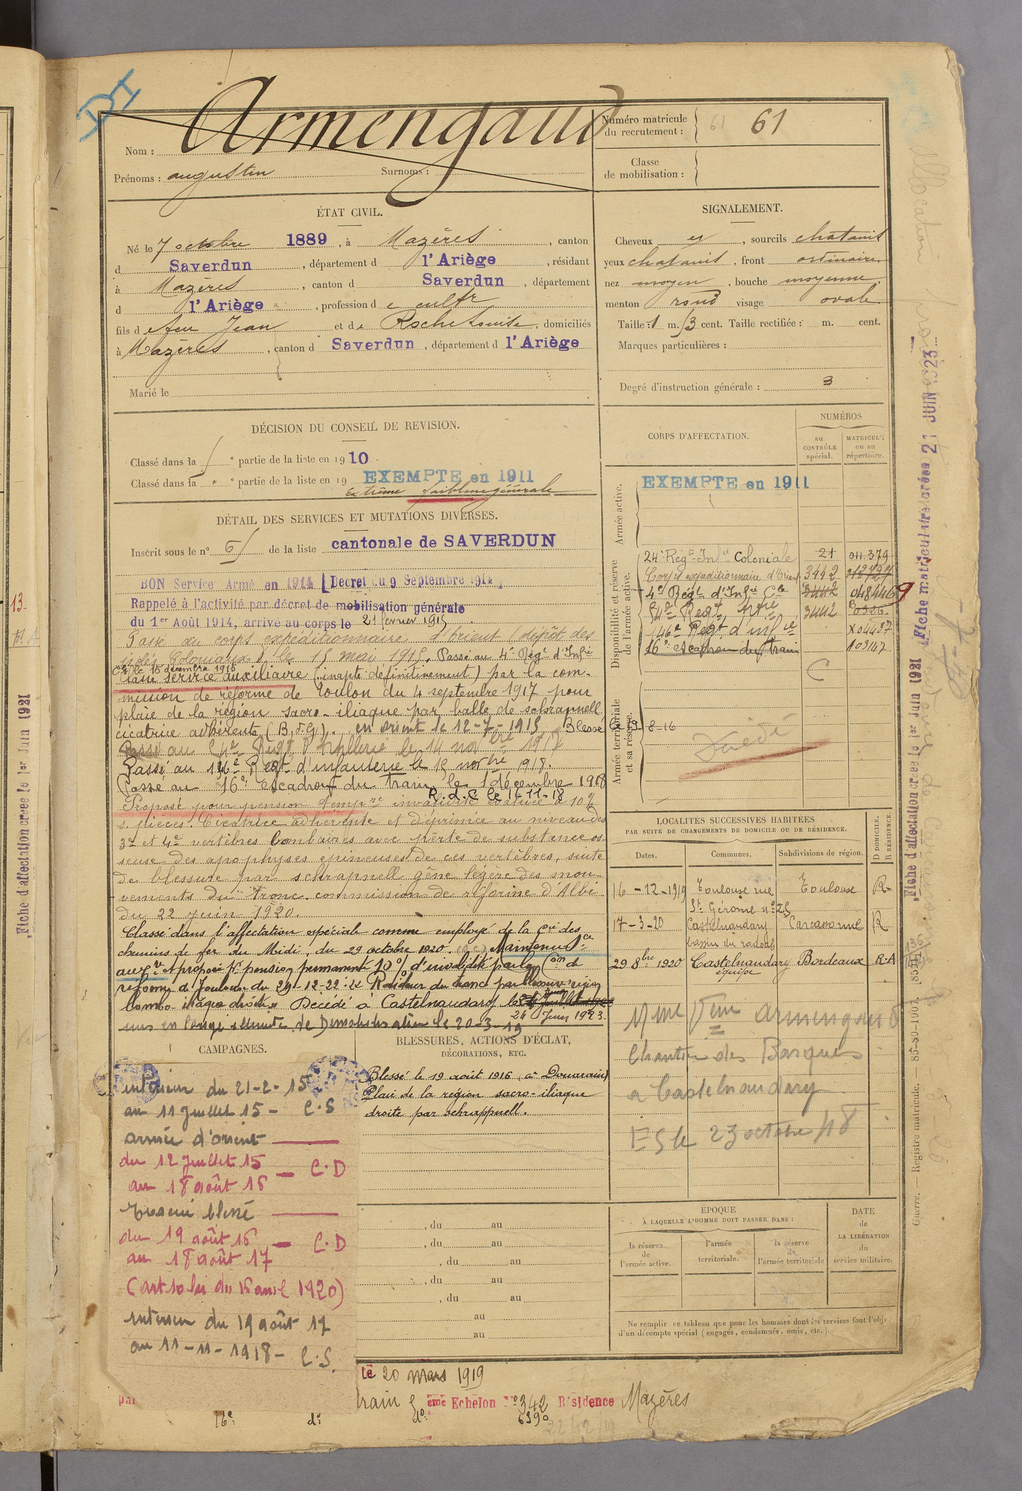 DI
Nom : Armengaud
Prénoms : augustin Surnoms :
Numéro matricule du recrutement : 61
Classe de mobilisation :
ÉTAT CIVIL.
Né le 7 octobre 1889, à Mazères, canton
d Saverdun, département d l'Ariège, résidant
à Mazères, canton d Saverdun, département
d l'Ariège, profession d e cultr
fils d e feu Jean et d e Roche Louise, domiciliés
à Mazères, canton d Saverdun, département d l'Ariège
Marié le
SIGNALEMENT.
Cheveux et, sourcils chatauit
yeux chatauit, front ordinaire
nez moyen, bouche moyenne
menton rond visage ovale
Taille : 1 m. 73 cent. Taille rectifiée : m. cent.
Marques particulières :
Degré d'instruction générale : 3
DÉCISION DU CONSEIL DE REVISION.
Classé dans la partie de la liste en 1910
Classé dans la " partie de la liste en 19 EXEMPTE en 1911
Extrême faiblesse générale
DÉTAIL DES SERVICES ET MUTATIONS DIVERSES.
Inscrit sous le n° 5 de la liste cantonale de SAVERDUN
BON Service Armé en 1914 [Decret du 9 Septembre 1914
Rappelé à l'activité par décret de mobilisation générale
du 1er Août 1914, arrivé au corps le 21 février 1915
Passé au corps expéditionnaire d'Orient (dépôt des
Colonial) le 15 mai 1915. Passé au 4e Régt d'Infie
Cle le 16 décembre 1916
Classé service auxiliaire (inapte définitivement) par la com-
mission de réforme de Toulon du 4 septembre 1917 pour
plaie de la région sacro-iliaque par balle de schrapnell
cicatrice adhérente (B.d.G). en orient le 12-7-1915 Blessé le 19-8-16
Passé au Regt d'artillerie le 14 novbre 1918
Passé au 146e Regt d'infanterie le 15 novbre 1918.
Passé au 16e escadron du train le 1 décembre 1918
R.d.C le 16-11-18
Proposé pour pension temp.re invalidité évaluée à 10%
s. pièces. Cicatrice adhérente et déprimée au niveau des
3e et 4e vertèbres lombaires avec perte de substance os-
seuse des apophyses épineuses de ces vertèbres, suite
de blessure par schrapnel gêne légère des mou-
vements du tronc commission de réforme d'Albi
du 22 juin 1920.
Classé dans l'affectation spéciale comme employé de la Cie des
chemins de fer du Midi, du 29 octobre 1920. Maintenu Sce
auxre et proposé pr pension permanente 10% d'invalidité par la Con de
réforme de Toulouse du 29-12-22
lombo-iliaque droite. Décédé à Castelnaudary le
26 Juin 1923.
mis en congé illimité de Démobilisation le 20-3-19
CORPS D'AFFECTATION.
NUMÉROS
AU CONTRÔLE spécial.
MATRICULE ou au répertoire.
Armée active.
EXEMPTE en 1911
Disponibilité et réserve de l'armée active.
24e Régt Infie Coloniale 21 011.379
Corps expéditionnaire d'Orient 3442
4e Régt d'Infie Cle 3442
Regt Artie 3442
146e Regt d'infie X04437
16e escadron du train
Armée territoriale et sa réserve.
C
Décédé
LOCALITÉS SUCCESSIVES HABITÉES
PAR SUITE DE CHANGEMENTS DE DOMICILE OU DE RÉSIDENCE.
Dates. Communes. Subdivisions de région. D DOMICILE. R RÉSIDENCE.
16-12-1919 Toulouse rue St Gérome n° 25 Toulouse R
17-3-20 Castelnaudary bassin du radoub Carcassonne R
29 8bre 1920 Castelnaudary équipe Bordeaux R-A
Mme Vve armengaud
Chantier des Basques
a Castelnaudary
ES le 23 octobre 48
CAMPAGNES.
intérieur du 21-2-15
au 11 juillet 15 - C.S
armée d'orient
du 12 juillet 15
au 18 août 16 - C.D
Evacué blessé
du 19 août 16 - C.D
au 18 août 17
(art 10 loi du 16 avril 1920)
intérieur du 19 août 17
au 11-11-1918 - C.S.
BLESSURES, ACTIONS D'ÉCLAT,
DÉCORATIONS, ETC.
Blessé le 19 août 1916 (à Doiran)
Plaie de la région sacro-iliaque
droite par schrapnell.
, du au
, du au
, du au
, du au
, du au
au
au
ÉPOQUE
À LAQUELLE L'HOMME DOIT PASSER DANS :
la réserve de l'armée active.
l'armée territoriale.
la réserve de l'armée territoriale
DATE de LA LIBÉRATION du service militaire.
Ne remplir ce tableau que pour les hommes dont les services font l'obj.
d'un décompte spécial (engagés, condamnés, omis, etc.).
Le 20 mars 1919
train 2 ème Echelon N° 342 Résidence Mazères
16e di do 639°
par
Fiche d'affectation créée le 1er Juin 1921
Fiche d'affectation créée le 1er Juin 1921
Fiche matriculaire créée 21 JUIN 1923
Guerre. Registre matricule. — 85-80-1907.
13